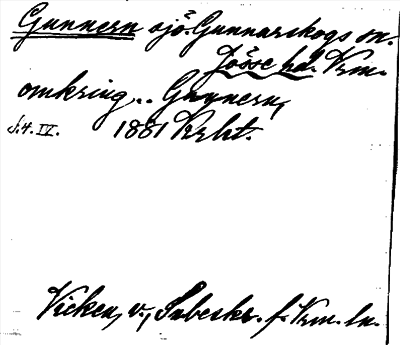 Gunnern sjö. Gunnarskogs sn.
Jösse hd. Vrm.
omkring .. Gunnern,
J.4.IV. 1881 Krht.
Vicken, v., Subeskr. f. Vrm. ln.